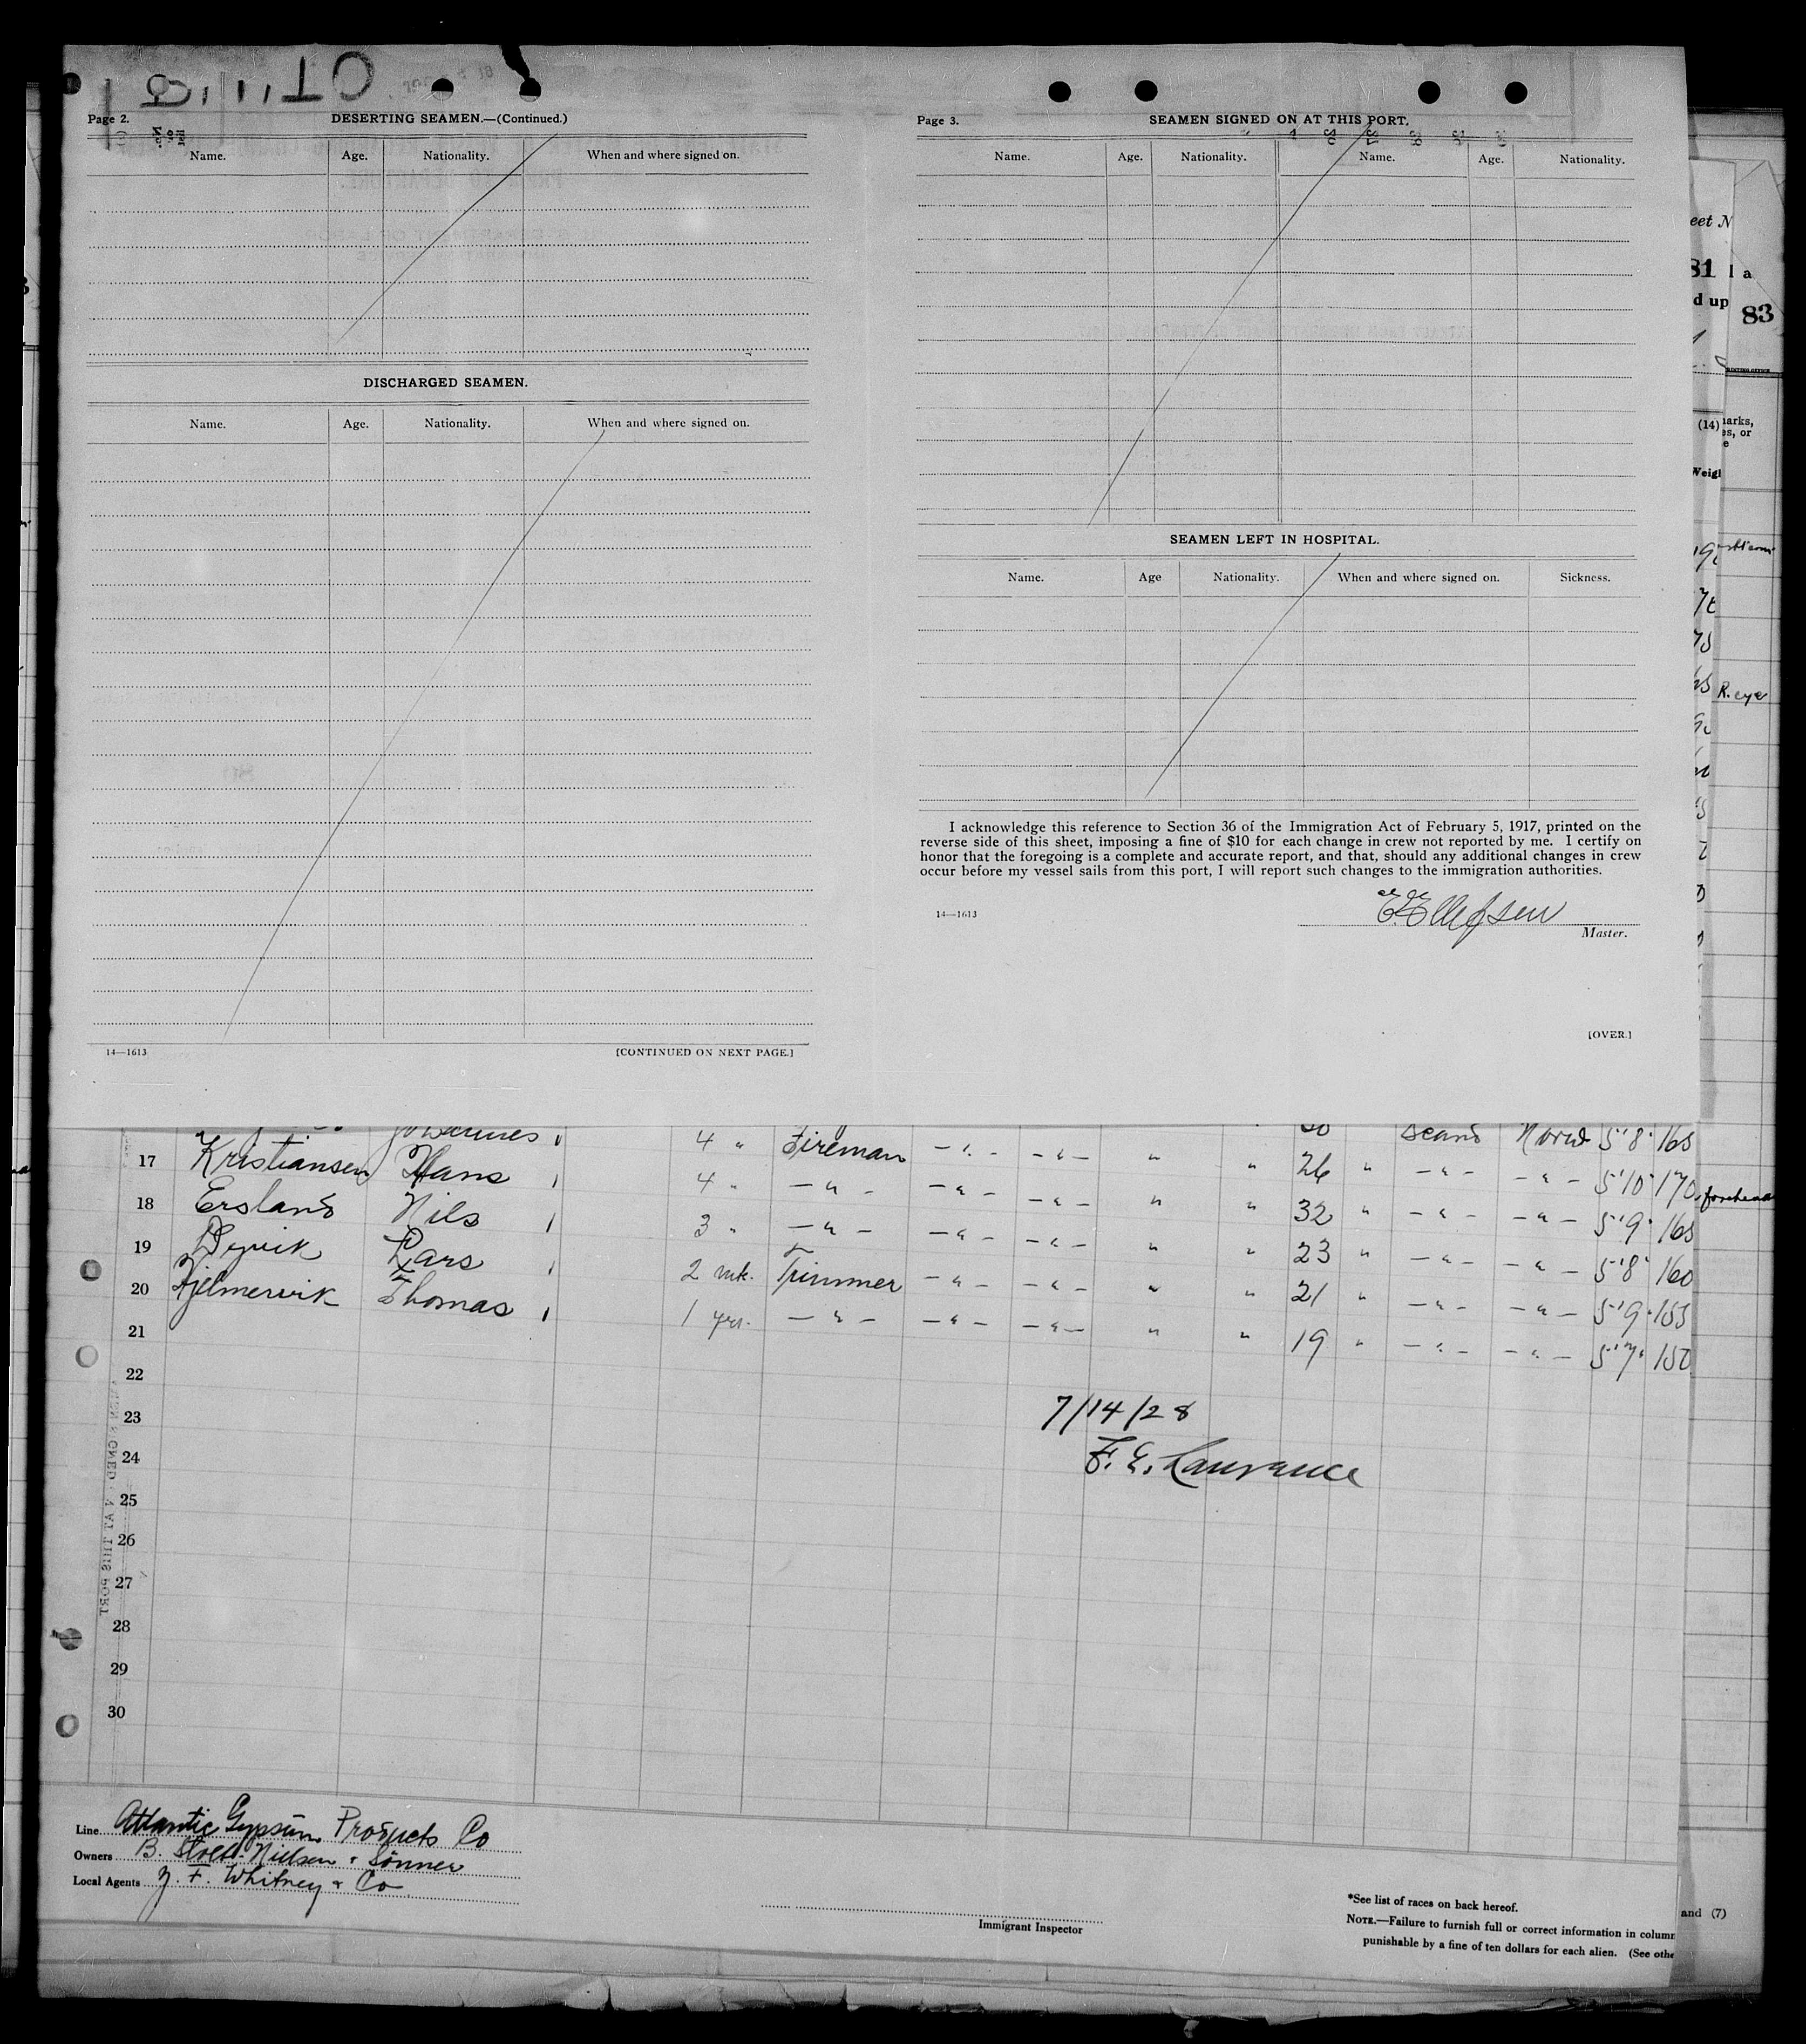 Page 2.
DESERTING SEAMEN.—(Continued.)
Name. Age. Nationality. When and where signed on.
DISCHARGED SEAMEN.
Name. Age. Nationality. When and where signed on.
14—1613
[CONTINUED ON NEXT PAGE.]
Page 3.
SEAMEN SIGNED ON AT THIS PORT.
Name. Age. Nationality. Name. Age. Nationality.
SEAMEN LEFT IN HOSPITAL.
Name. Age Nationality. When and where signed on. Sickness.
I acknowledge this reference to Section 36 of the Immigration Act of February 5, 1917, printed on the
reverse side of this sheet, imposing a fine of $10 for each change in crew not reported by me. I certify on
honor that the foregoing is a complete and accurate report, and that, should any additional changes in crew
occur before my vessel sails from this port, I will report such changes to the immigration authorities.
14—1613
Master.
[OVER.]
eet N
81 l a
d up
83
(14)
arks,
es, or
e
Weigl
R. eye
4 " Fireman 30 Scand Norw 5'8" 165
17 Kristiansen Hans 4 " — " — — " — — " — " " 26 " — " — — " — 5'10" 170 forehead
18 Ersland Nils 3 " — " — — " — — " — " " 32 " — " — — " — 5'9" 165
19 Lars 2 mt. Trimmer — " — — " — " " 23 " — " — — " — 5'8" 160
20 Thomas 1 yrs. — " — — " — — " — " " 21 " — " — — " — 5'9" 155
21 19 " — " — — " — 5'7" 150
22
23
24
25
26
27
28
29
30
7/14/28
F. E. Lawrance
SIGNED AT THIS PORT
Line Atlantic Gypsum Products Co
Owners B. Stolt-Nielsen & Sonner
Local Agents J. F. Whitney & Co
Immigrant Inspector
*See list of races on back hereof.
NOTE.—Failure to furnish full or correct information in column
punishable by a fine of ten dollars for each alien. (See othe
and (7)